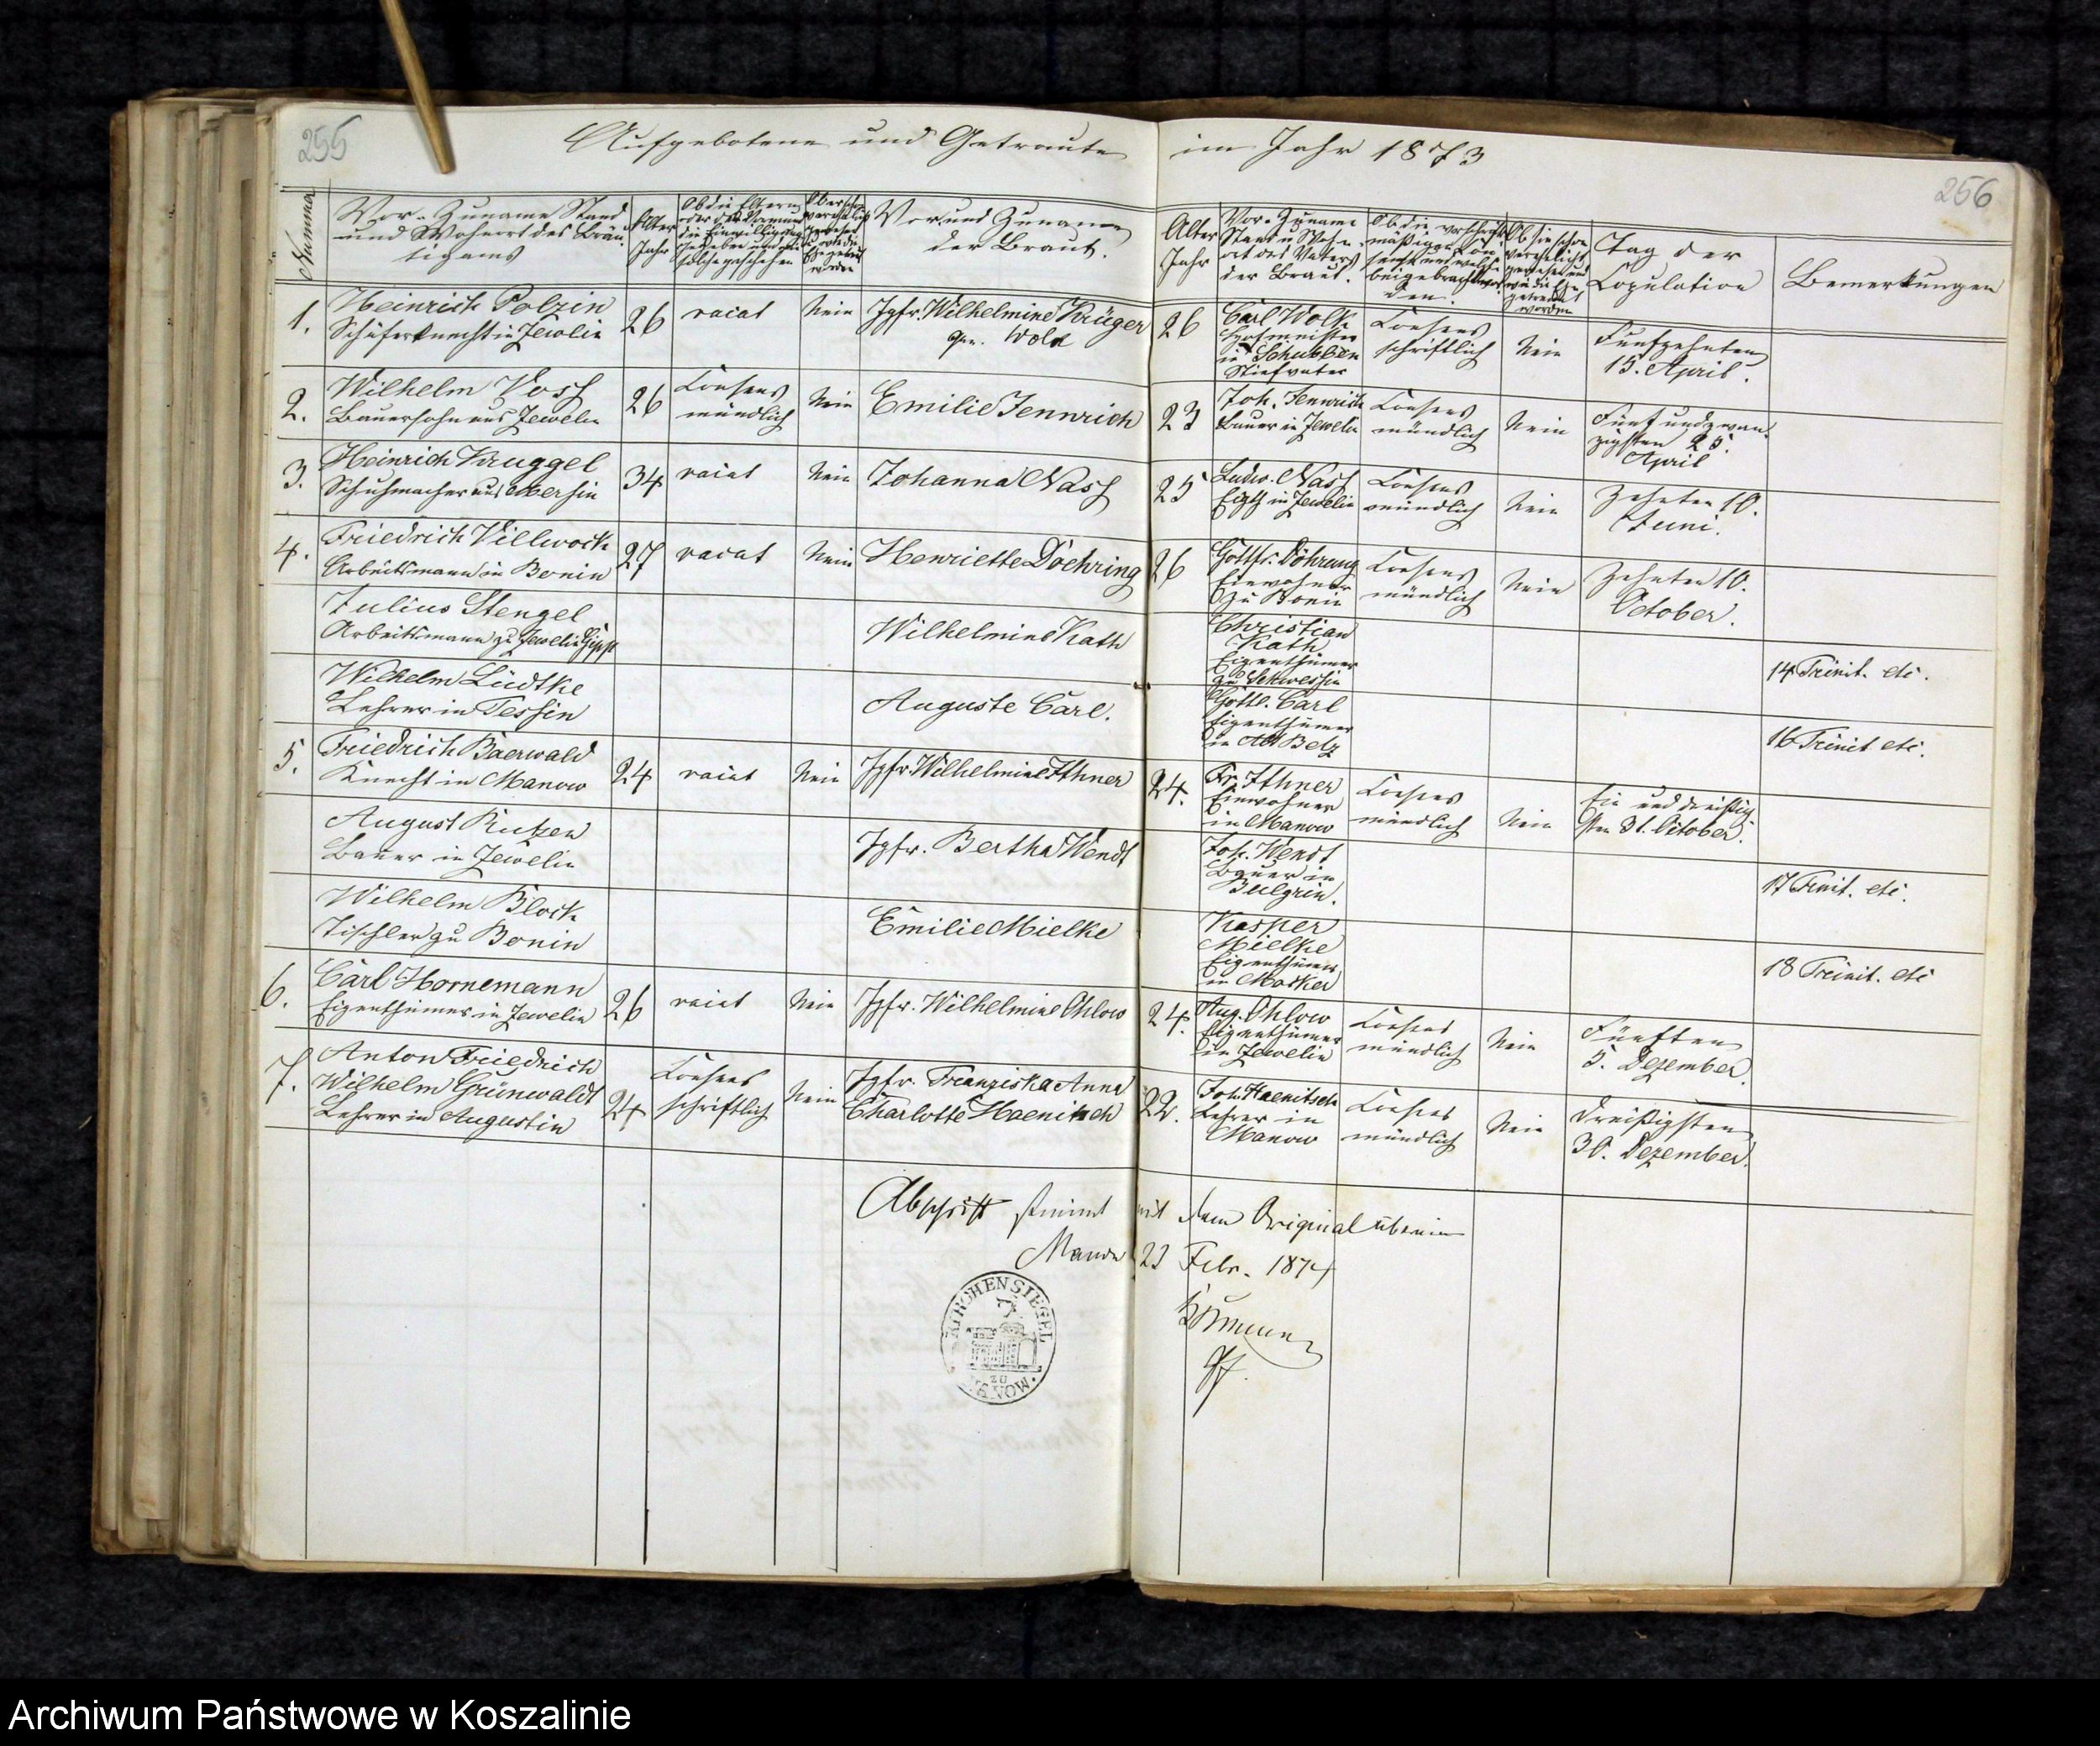 255
Aufgebotene und Getraute im Jahr 1873
256
Nummer
Vor- Zuname Stand
und Wohnort des Bräu-
tigams
Alter
Jahr
Ob die Eltern
oder der Vormund
die Einwilligung
gegeben und wie
solche geschehen
Ob er schon
verehelicht
gewesen
u. wie die
Ehe getrennt
worden
Vor und Zuname
der Braut.
Alter
Jahr
Vor- Zuname
Stand u Wohn-
ort des Vaters
der Braut.
Ob die vorschrifts-
mäßigen Con-
sense und welche
beigebracht wor-
den.
Ob sie schon
verehelicht
gewesen und
wie die Ehe
getrennt
worden
Tag der
Copulation
Bemerkungen
1.
Heinrich Polzin
Schäferknecht in Jewelin
26
vacat
Nein
Jgfr. Wilhelmine Krüger
gen. Wolk
26
Carl Wolk
in Schübben
Stiefvater
Consens
schriftlich
Nein
Funfzehnten
15. April.
2.
Wilhelm Voss
Bauersohn aus Jewelin
26
Consens
mündlich
Nein
Emilie Jennrich
23
Joh. Jennrich
Bauer in Jewelin
Consens
mündlich
Nein
Fünf und zwan-
zigsten 25.
April
3.
Heinrich Kruggel
Schuhmacher aus Mersin
34
vacat
Nein
Johanna Nass
25
Ludw. Nass
Eigth in Jewelin
Consens
mündlich
Nein
Zehnten 10.
Juni.
4.
Friedrich Villwock
Arbeitsmann in Bonin
27
vacat
Nein
Henriette Doehring
26
Gottfr. Döhring
Einwohner
zu Bonin
Consens
mündlich
Nein
Zehnten 10.
October.
Julius Stengel
Arbeitsmann zu Jewelin
Wilhelmine Kath
Christian
Kath
Eigenthümer
zu Schwessin
14 Trinit. etc.
Wilhelm Lüdtke
Lehrer in Tessin
Auguste Carl.
Gottl. Carl
Eigenthümer
in Alt Belz
16 Trinit etc.
5.
Friedrich Baerwald
Knecht in Manow
24
vacat
Nein
Jgfr Wilhelmine Ithner
24.
Fr. Ithner
Einwohner
in Manow
Consens
mündlich
Nein
Ein und dreißig-
sten 31. October.
August Rutzen
Bauer in Jewelin
Jgfr. Bertha Wendt
Joh. Wendt
Bauer in
Bulgrin.
17 Trinit. etc.
Wilhelm Block
Tischler zu Bonin
Emilie Mielke
Kasper
Mielke
Eigenthümer
in Mocker
18 Trinit. etc
6.
Carl Hornemann
Eigenthümer in Jewelin
26
vacat
Nein
Jgfr. Wilhelmine Ohlow
24.
Aug. Ohlow
Eigenthümer
in Jewelin
Consens
mündlich
Nein
Fünften
5. Dezember.
7.
Anton Friedrich
Wilhelm Grünwaldt
Lehrer in Augustin
24
Consens
schriftlich
Nein
Jgfr. Franziska Anna
Charlotte Haenitsch
22.
Joh. Haenitsch
Lehrer in
Manow
Consens
mündlich
Nein
Dreißigsten
30. Dezember.
Abschrift stimmt mit dem Original überein
Manow 23 Febr. 1874
KIRCHENSIEGEL
ZU
MANOW.
Archiwum Państwowe w Koszalinie